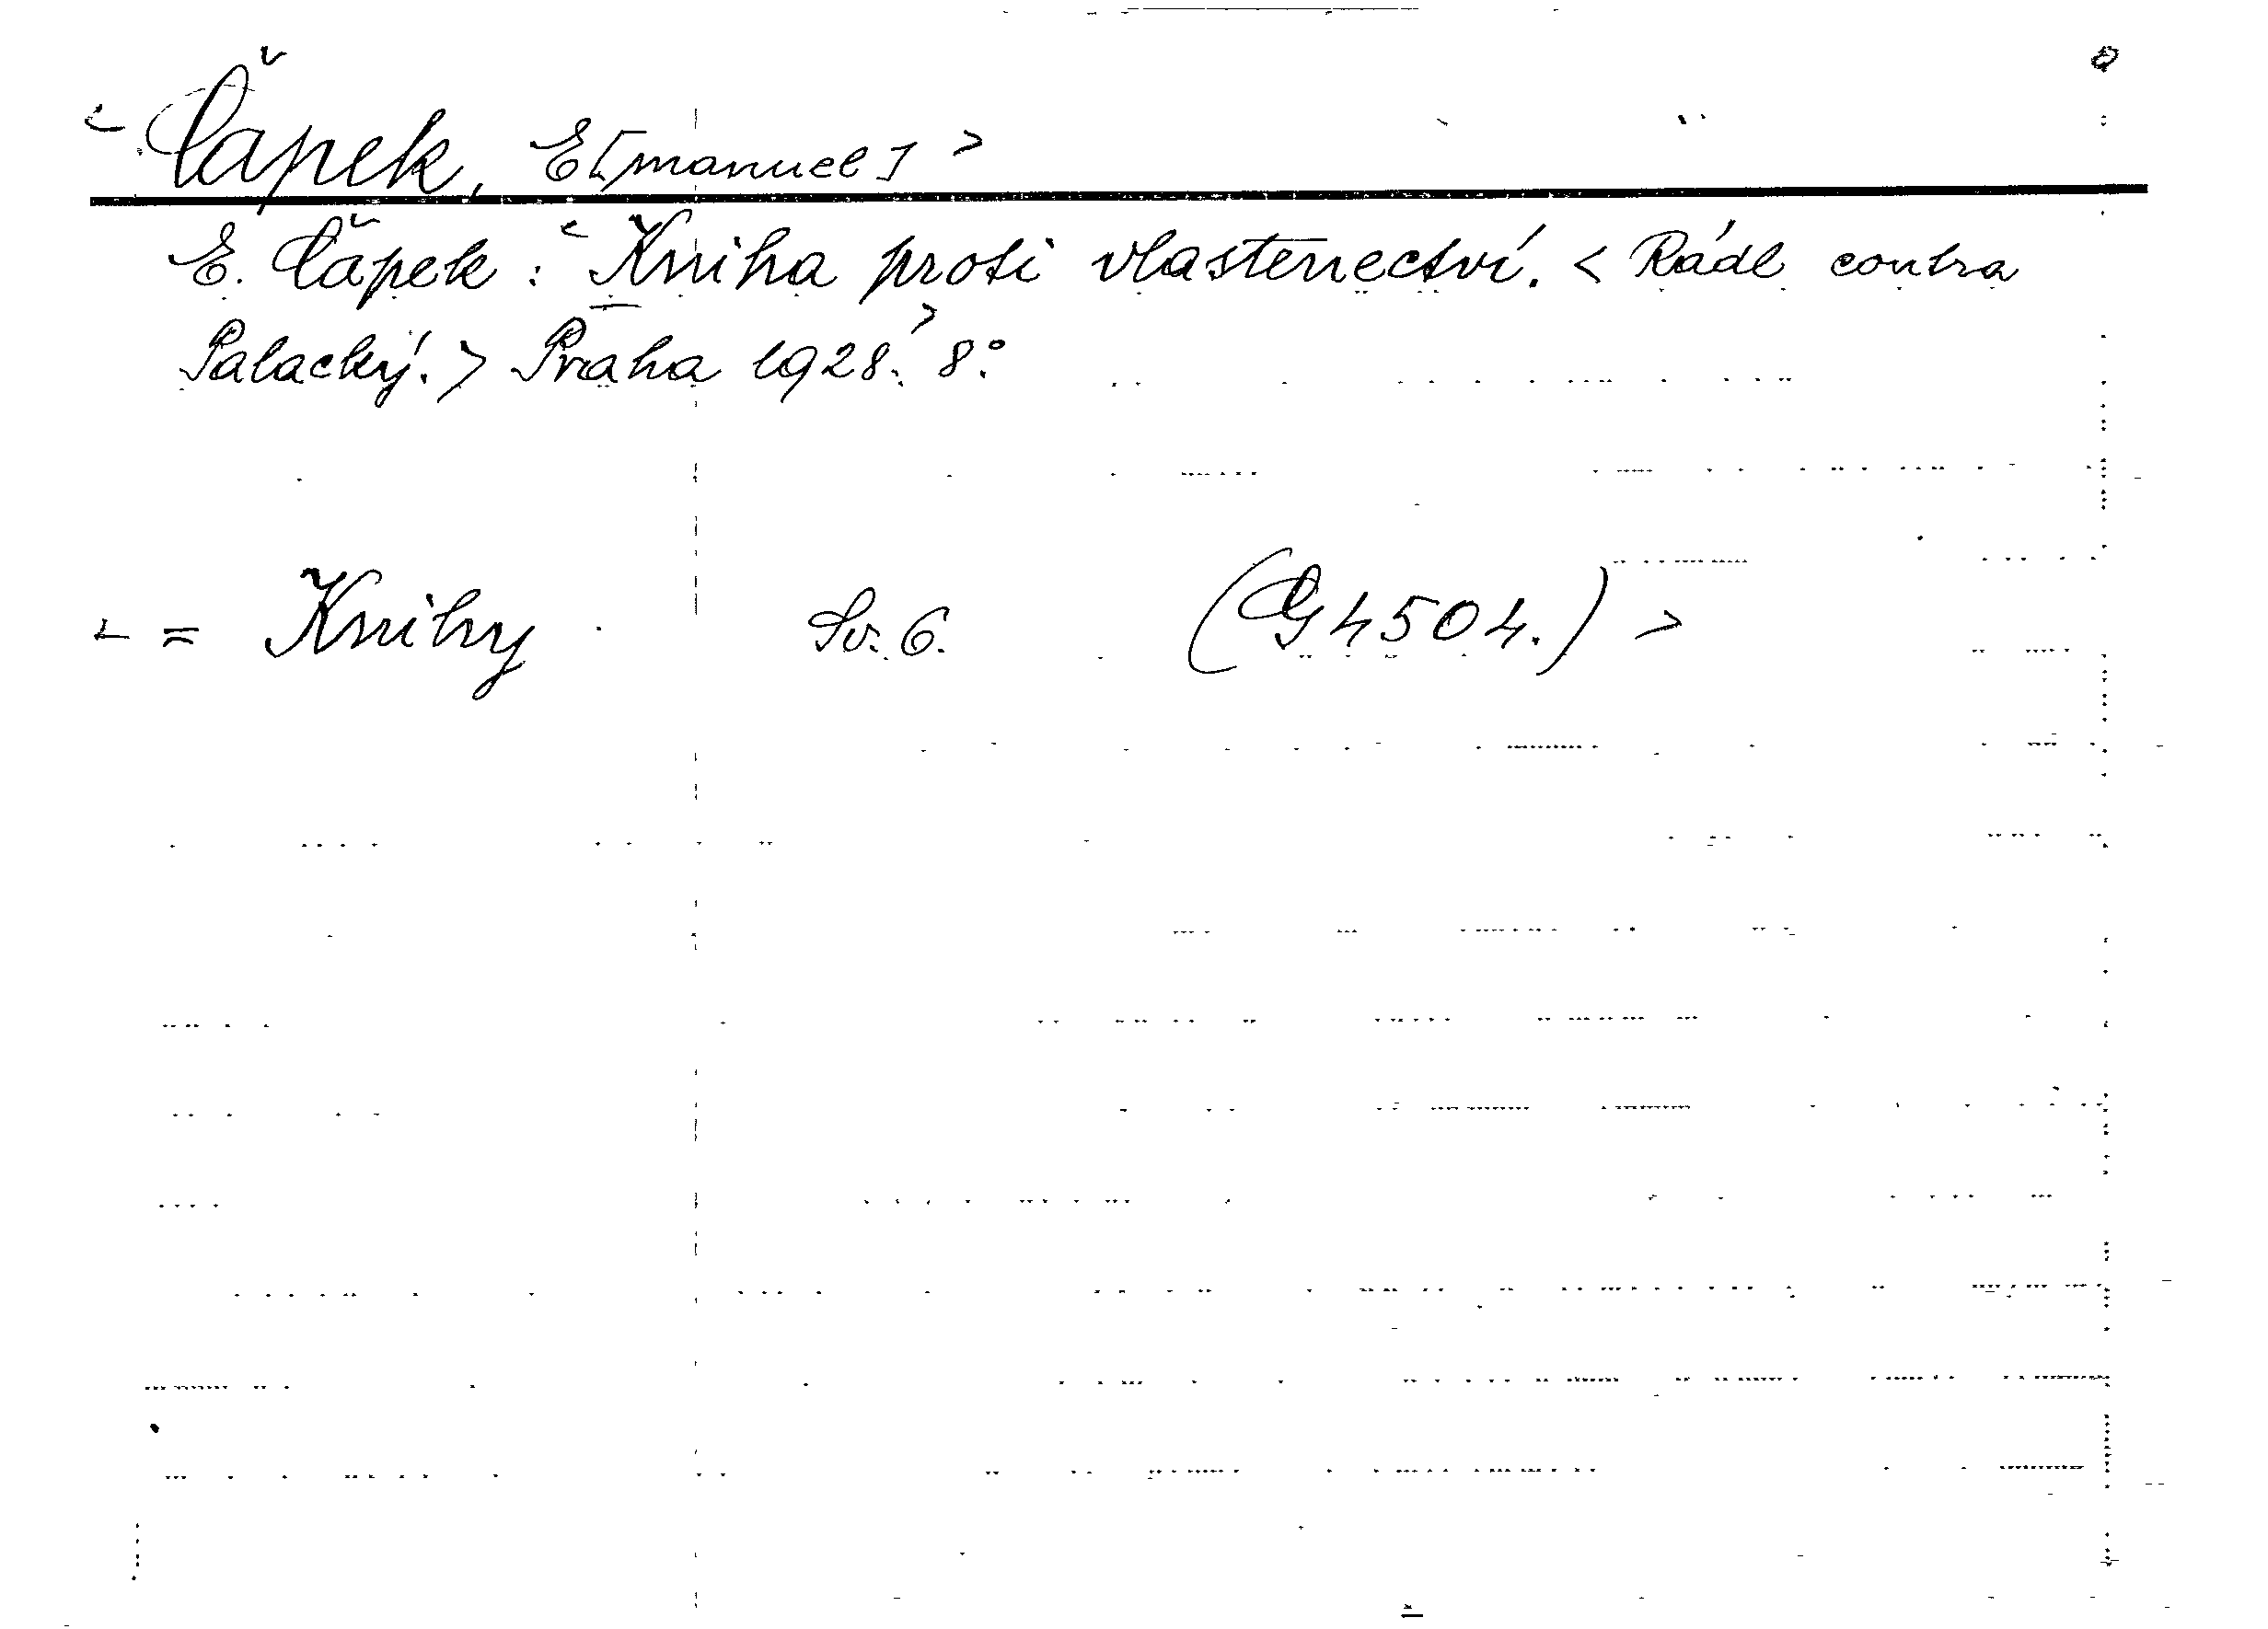 Čapek, E[manuel]
E. Čapek: Kniha proti vlastenectví. < Rádl contra
Palacký. > Praha 1928. 8°.
= Knihy Sv. 6. (G 4504.)